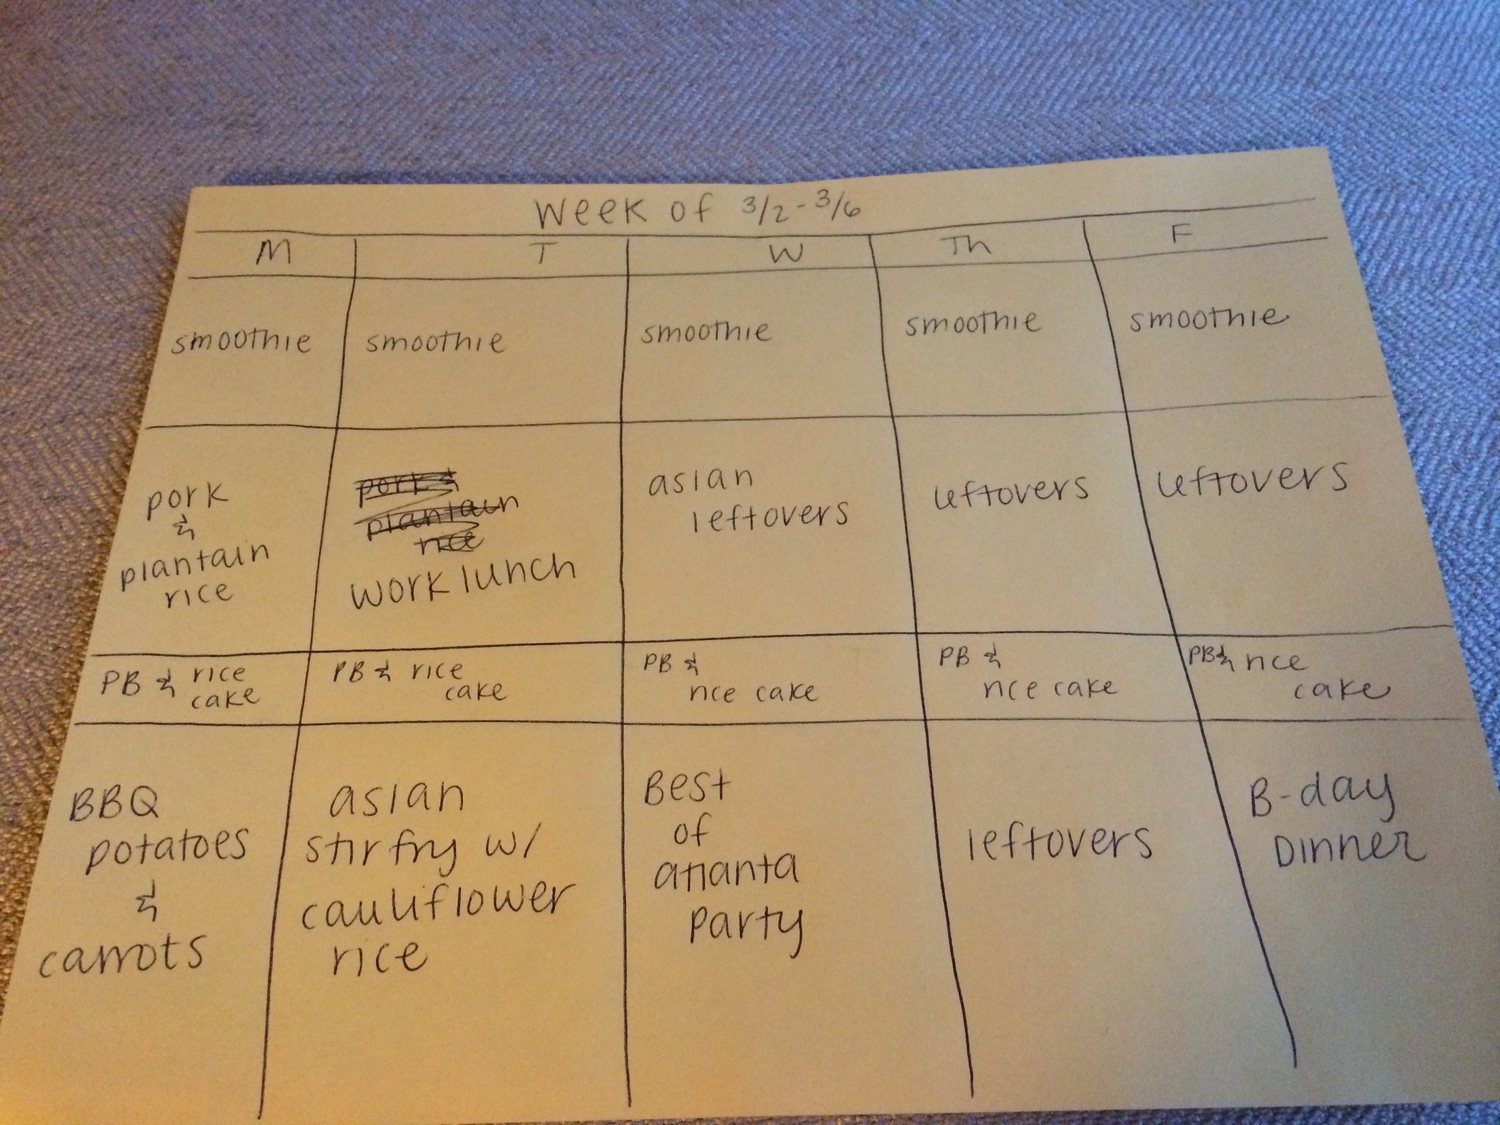 Week of 3/2 - 3/6
M T W Th F
smoothie smoothie smoothie smoothie smoothie
pork
&
plantain
rice
pork &
plantain
rice
work lunch
asian
leftovers
leftovers
leftovers
PB & rice
cake
PB & rice
cake
PB &
rice cake
PB &
rice cake
PB & rice
cake
BBQ
potatoes
&
carrots
asian
stir fry w/
cauliflower
rice
Best
of
atlanta
party
leftovers
B-day
Dinner